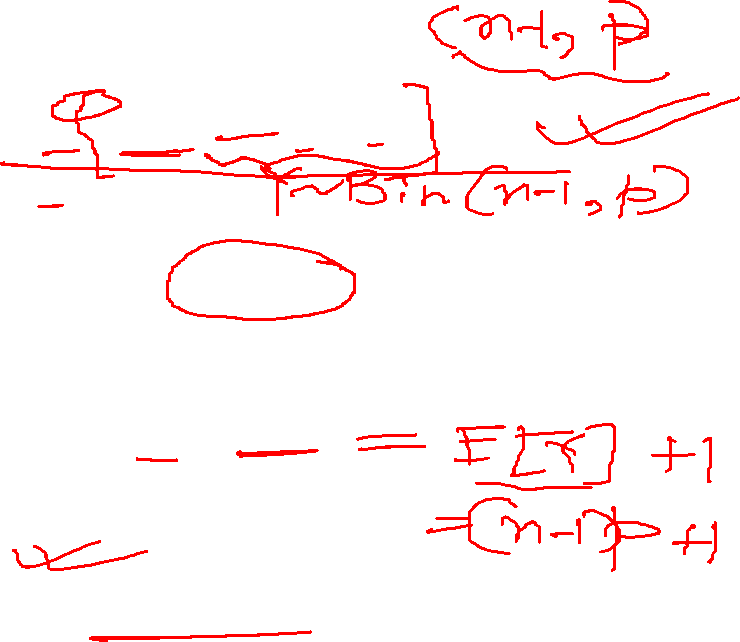 (n-1, p)
Y~Bin(n-1, p)
= E[Y] +1
=(n-1)p +1